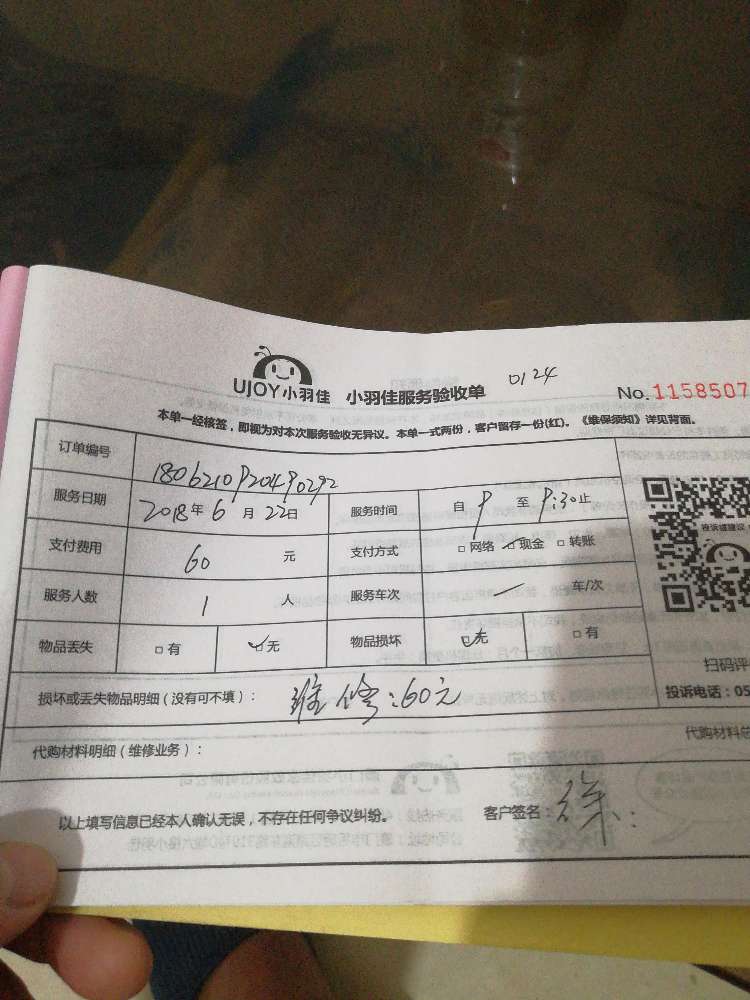 UJOY小羽佳 小羽佳服务验收单 0124
No.1158507
本单一经核签，即视为对本次服务验收无异议。本单一式两份，客户留存一份(红)。《维保须知》详见背面。
订单编号 1806210920490292
服务日期 2018年6月22日 服务时间 自9至9:30止
支付费用 60元 支付方式 □网络 ☑现金 □转账
投诉或建议
服务人数 1人 服务车次 一 车/次
物品丢失 □有 ☑无 物品损坏 ☑无 □有
扫码评
损坏或丢失物品明细（没有可不填）： 维修:60元
投诉电话：05
代购材料明细（维修业务）：
代购材料总
以上填写信息已经本人确认无误，不存在任何争议纠纷。 客户签名：徐